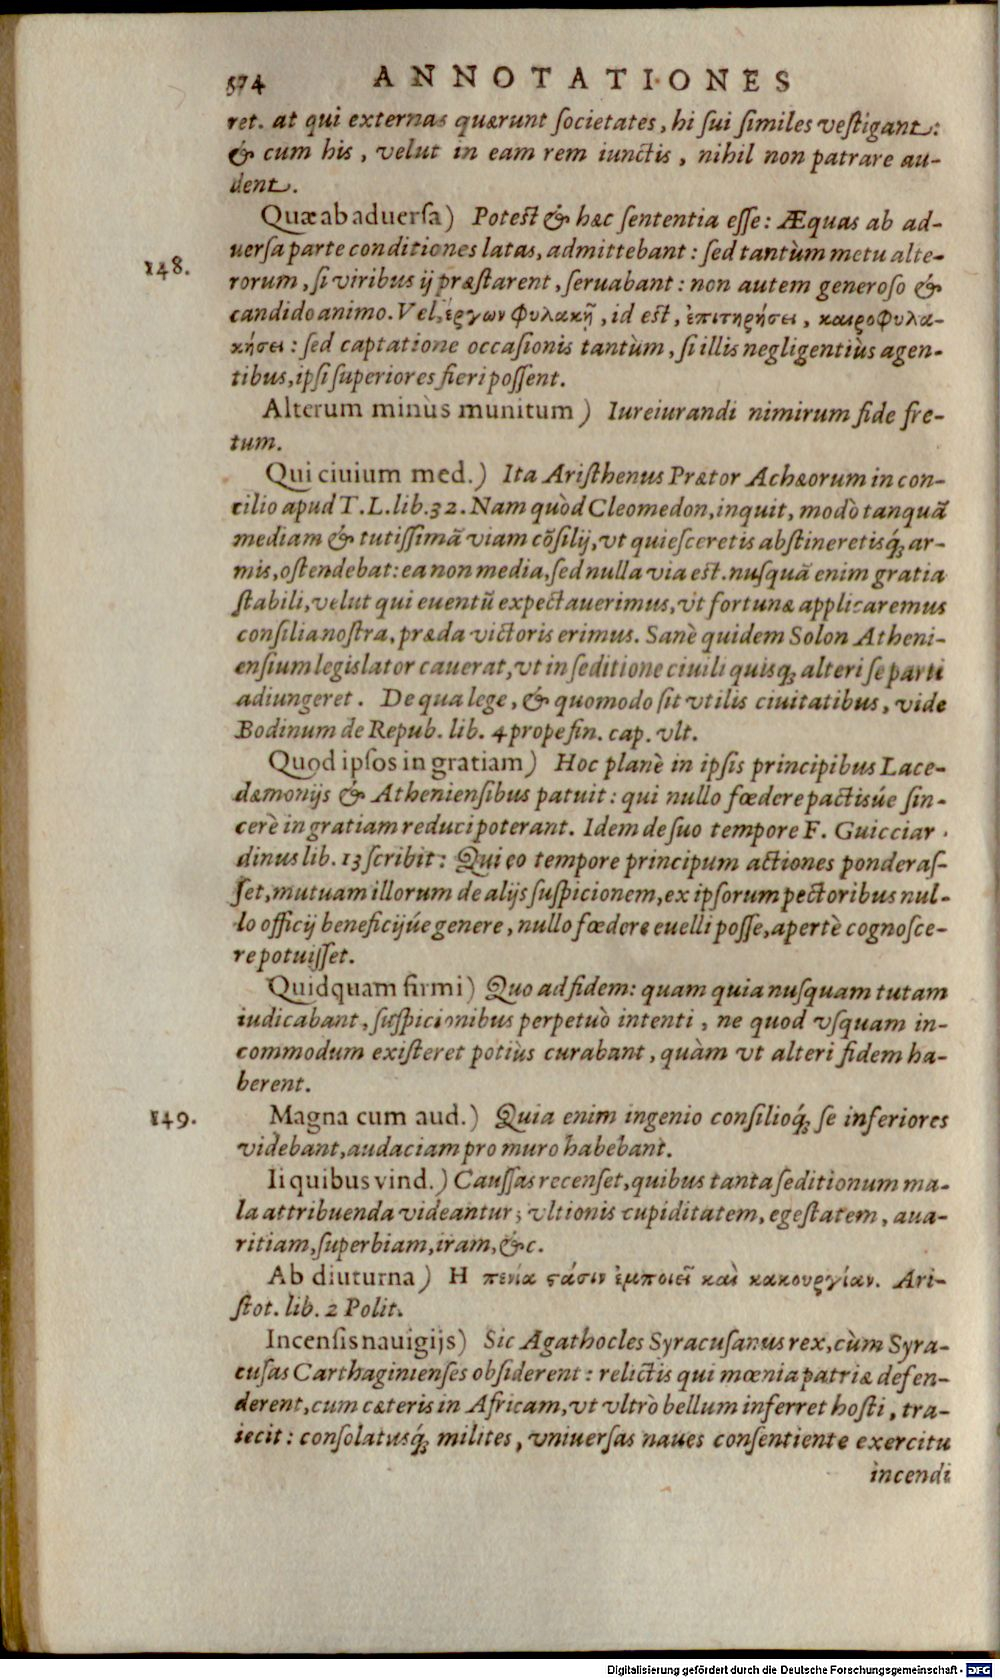 574 ANNOTATIONES
ret. at qui externas quærunt ſocietates, hi ſui ſimiles veſtigant:
& cum his, velut in eam rem iunctis, nihil non patrare au-
dent.
Quæ ab aduerſa) Poteſt & hæc ſententia eſſe: Æquas ab ad-
uerſa parte conditiones latas, admittebant: ſed tantùm metu alte-
148.
rorum, ſi viribus ij præſtarent, ſeruabant: non autem generoſo &
candido animo. Vel, ἔργων φυλακῇ, id eſt, ἐπιτηρήσει, καιροφυλα-
κήσει: ſed captatione occaſionis tantùm, ſi illis negligentiùs agen-
tibus, ipſi ſuperiores fieri poſſent.
Alterum minùs munitum) Iureiurandi nimirum fide fre-
tum.
Qui ciuium med.) Ita Ariſthenus Prætor Achæorum in con-
cilio apud T. L. lib. 32. Nam quòd Cleomedon, inquit, modò tanquã
mediam & tutiſſimã viam cõſilij, vt quieſceretis abſtineretisq́; ar-
mis, oſtendebat: ea non media, ſed nulla via eſt. nuſquã enim gratia
ſtabili, velut qui euentũ expectauerimus, vt fortunæ applicaremus
conſilia noſtra, præda victoris erimus. Sanè quidem Solon Atheni-
enſium legislator cauerat, vt in ſeditione ciuili quisq; alteri ſe parti
adiungeret. De qua lege, & quomodo ſit vtilis ciuitatibus, vide
Bodinum de Repub. lib. 4 prope fin. cap. vlt.
Quod ipſos in gratiam) Hoc planè in ipſis principibus Lace-
dæmonijs & Athenienſibus patuit: qui nullo fœdere pactisúe ſin-
cerè in gratiam reduci poterant. Idem de ſuo tempore F. Guicciar-
dinus lib. 13 ſcribit: Qui eo tempore principum actiones ponderaſ-
ſet, mutuam illorum de alijs ſuſpicionem, ex ipſorum pectoribus nul-
lo officij beneficijúe genere, nullo fœdere euelli poſſe, apertè cognoſce-
re potuiſſet.
Quidquam firmi) Quo ad fidem: quam quia nuſquam tutam
iudicabant, ſuſpicionibus perpetuò intenti, ne quod vſquam in-
commodum exiſteret potiùs curabant, quàm vt alteri fidem ha-
berent.
149. Magna cum aud.) Quia enim ingenio conſilioq́; ſe inferiores
videbant, audaciam pro muro habebant.
Ii quibus vind.) Cauſſas recenſet, quibus tanta ſeditionum ma-
la attribuenda videantur; vltionis cupiditatem, egeſtatem, aua-
ritiam, ſuperbiam, iram, &c.
Ab diuturna) Η πενία ϛάσιν ἐμποιεῖ καὶ κακουργίαν. Ari-
ſtot. lib. 2 Polit.
Incenſis nauigijs) Sic Agathocles Syracuſanus rex, cùm Syra-
cuſas Carthaginienſes obſiderent: relictis qui mœnia patriæ defen-
derent, cum cæteris in Africam, vt vltrò bellum inferret hoſti, tra-
iecit: conſolatusq́; milites, vniuerſas naues conſentiente exercitu
incendi
Digitalisierung gefördert durch die Deutsche Forschungsgemeinschaft - DFG